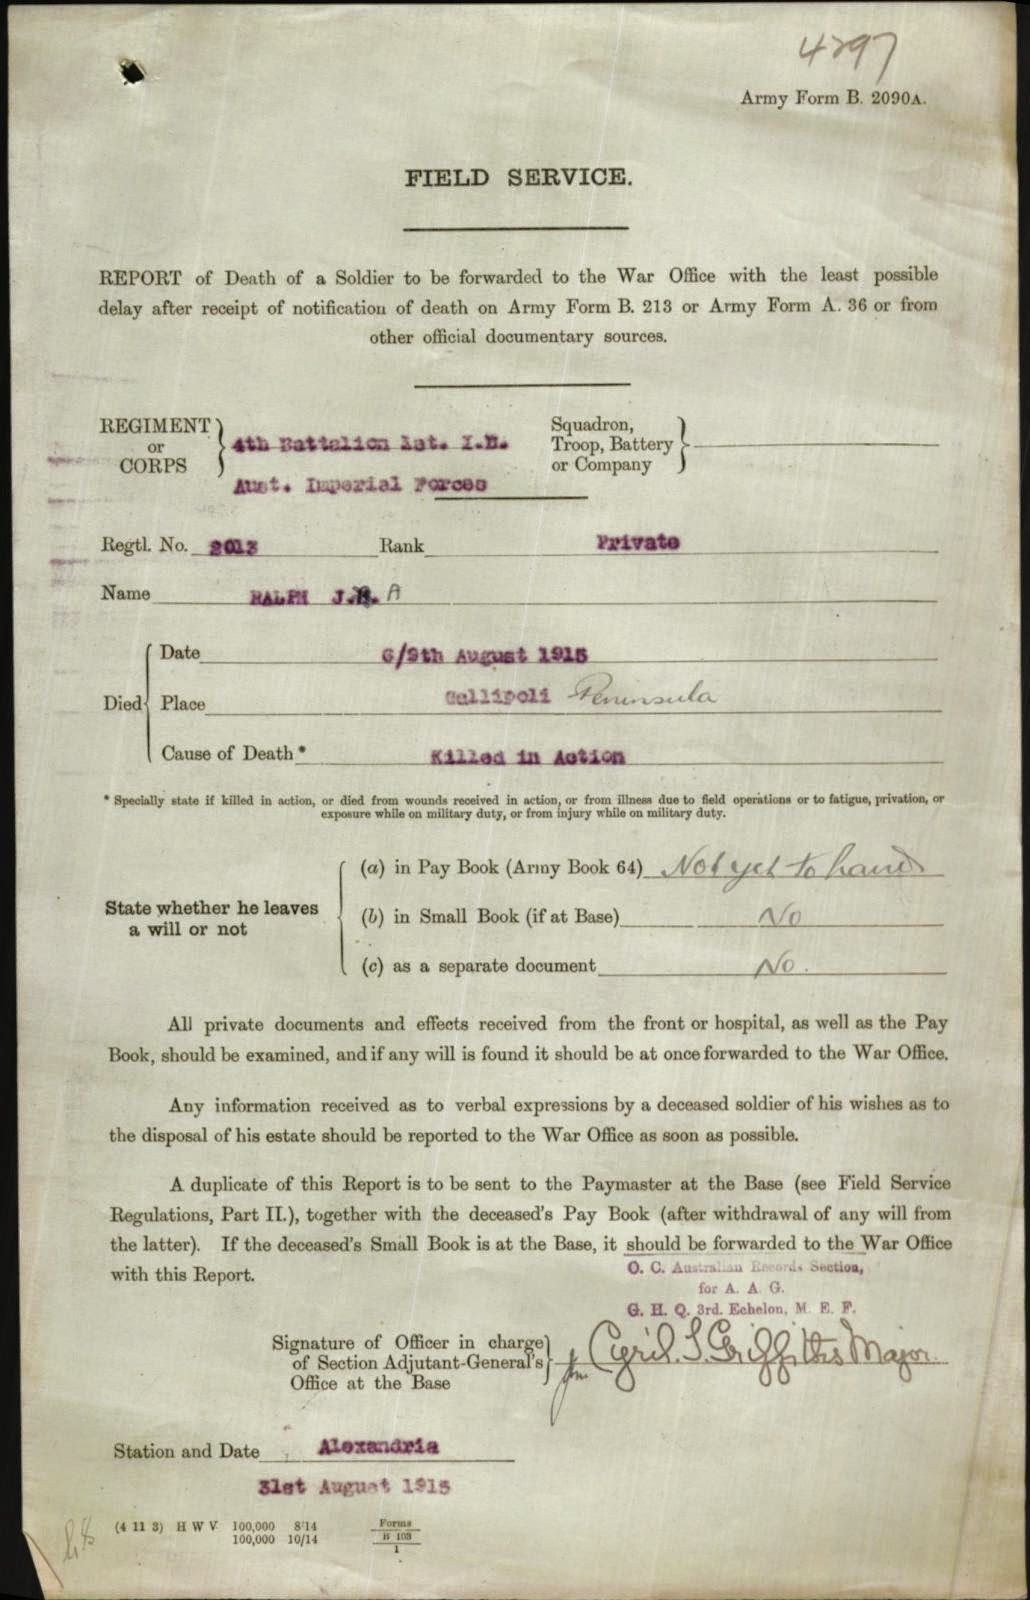 4297
Army Form B. 2090A.
FIELD SERVICE.
REPORT of Death of a Soldier to be forwarded to the War Office with the least possible
delay after receipt of notification of death on Army Form B. 213 or Army Form A. 36 or from
other official documentary sources.
REGIMENT or CORPS } 4th Battalion 1st. I.B.
Aust. Imperial Forces
Squadron, Troop, Battery or Company }
Regtl. No. 2013 Rank Private
Name RALPH J. A
Died { Date 6/9th August 1915
Place Gallipoli Peninsula
Cause of Death* Killed in Action
* Specially state if killed in action, or died from wounds received in action, or from illness due to field operations or to fatigue, privation, or
exposure while on military duty, or from injury while on military duty.
State whether he leaves
a will or not
(a) in Pay Book (Army Book 64) Not yet to hand
(b) in Small Book (if at Base) No
(c) as a separate document No.
All private documents and effects received from the front or hospital, as well as the Pay
Book, should be examined, and if any will is found it should be at once forwarded to the War Office.
Any information received as to verbal expressions by a deceased soldier of his wishes as to
the disposal of his estate should be reported to the War Office as soon as possible.
A duplicate of this Report is to be sent to the Paymaster at the Base (see Field Service
Regulations, Part II.), together with the deceased's Pay Book (after withdrawal of any will from
the latter). If the deceased's Small Book is at the Base, it should be forwarded to the War Office
with this Report.
O. C. Australian Records Section,
for A. A. G.
G. H. Q. 3rd. Echelon, M. E. F.
Signature of Officer in charge
of Section Adjutant-General's
Office at the Base
for Cyril. S. Griffiths Major.
Station and Date Alexandria
31st August 1915
(4 11 3) H W V 100,000 8/14
100,000 10/14
Forms
B 103
1